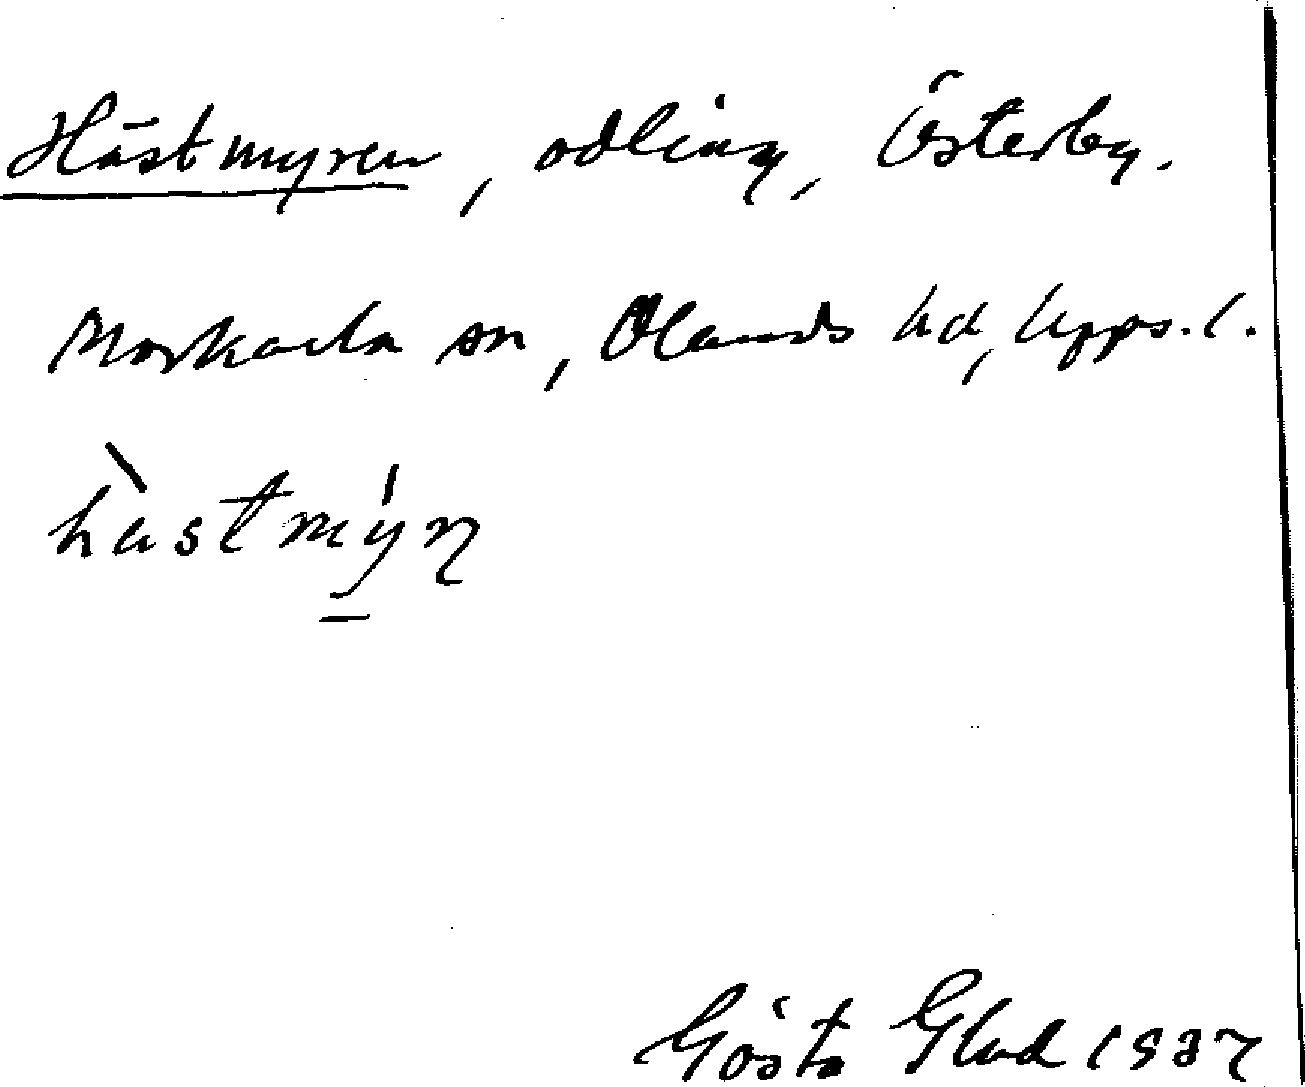 Hästmyren, odling, Österby.
Morkarla sn, Olands hd, Upps. l.
hà̀stmýn̥
Gösta Glad 1937